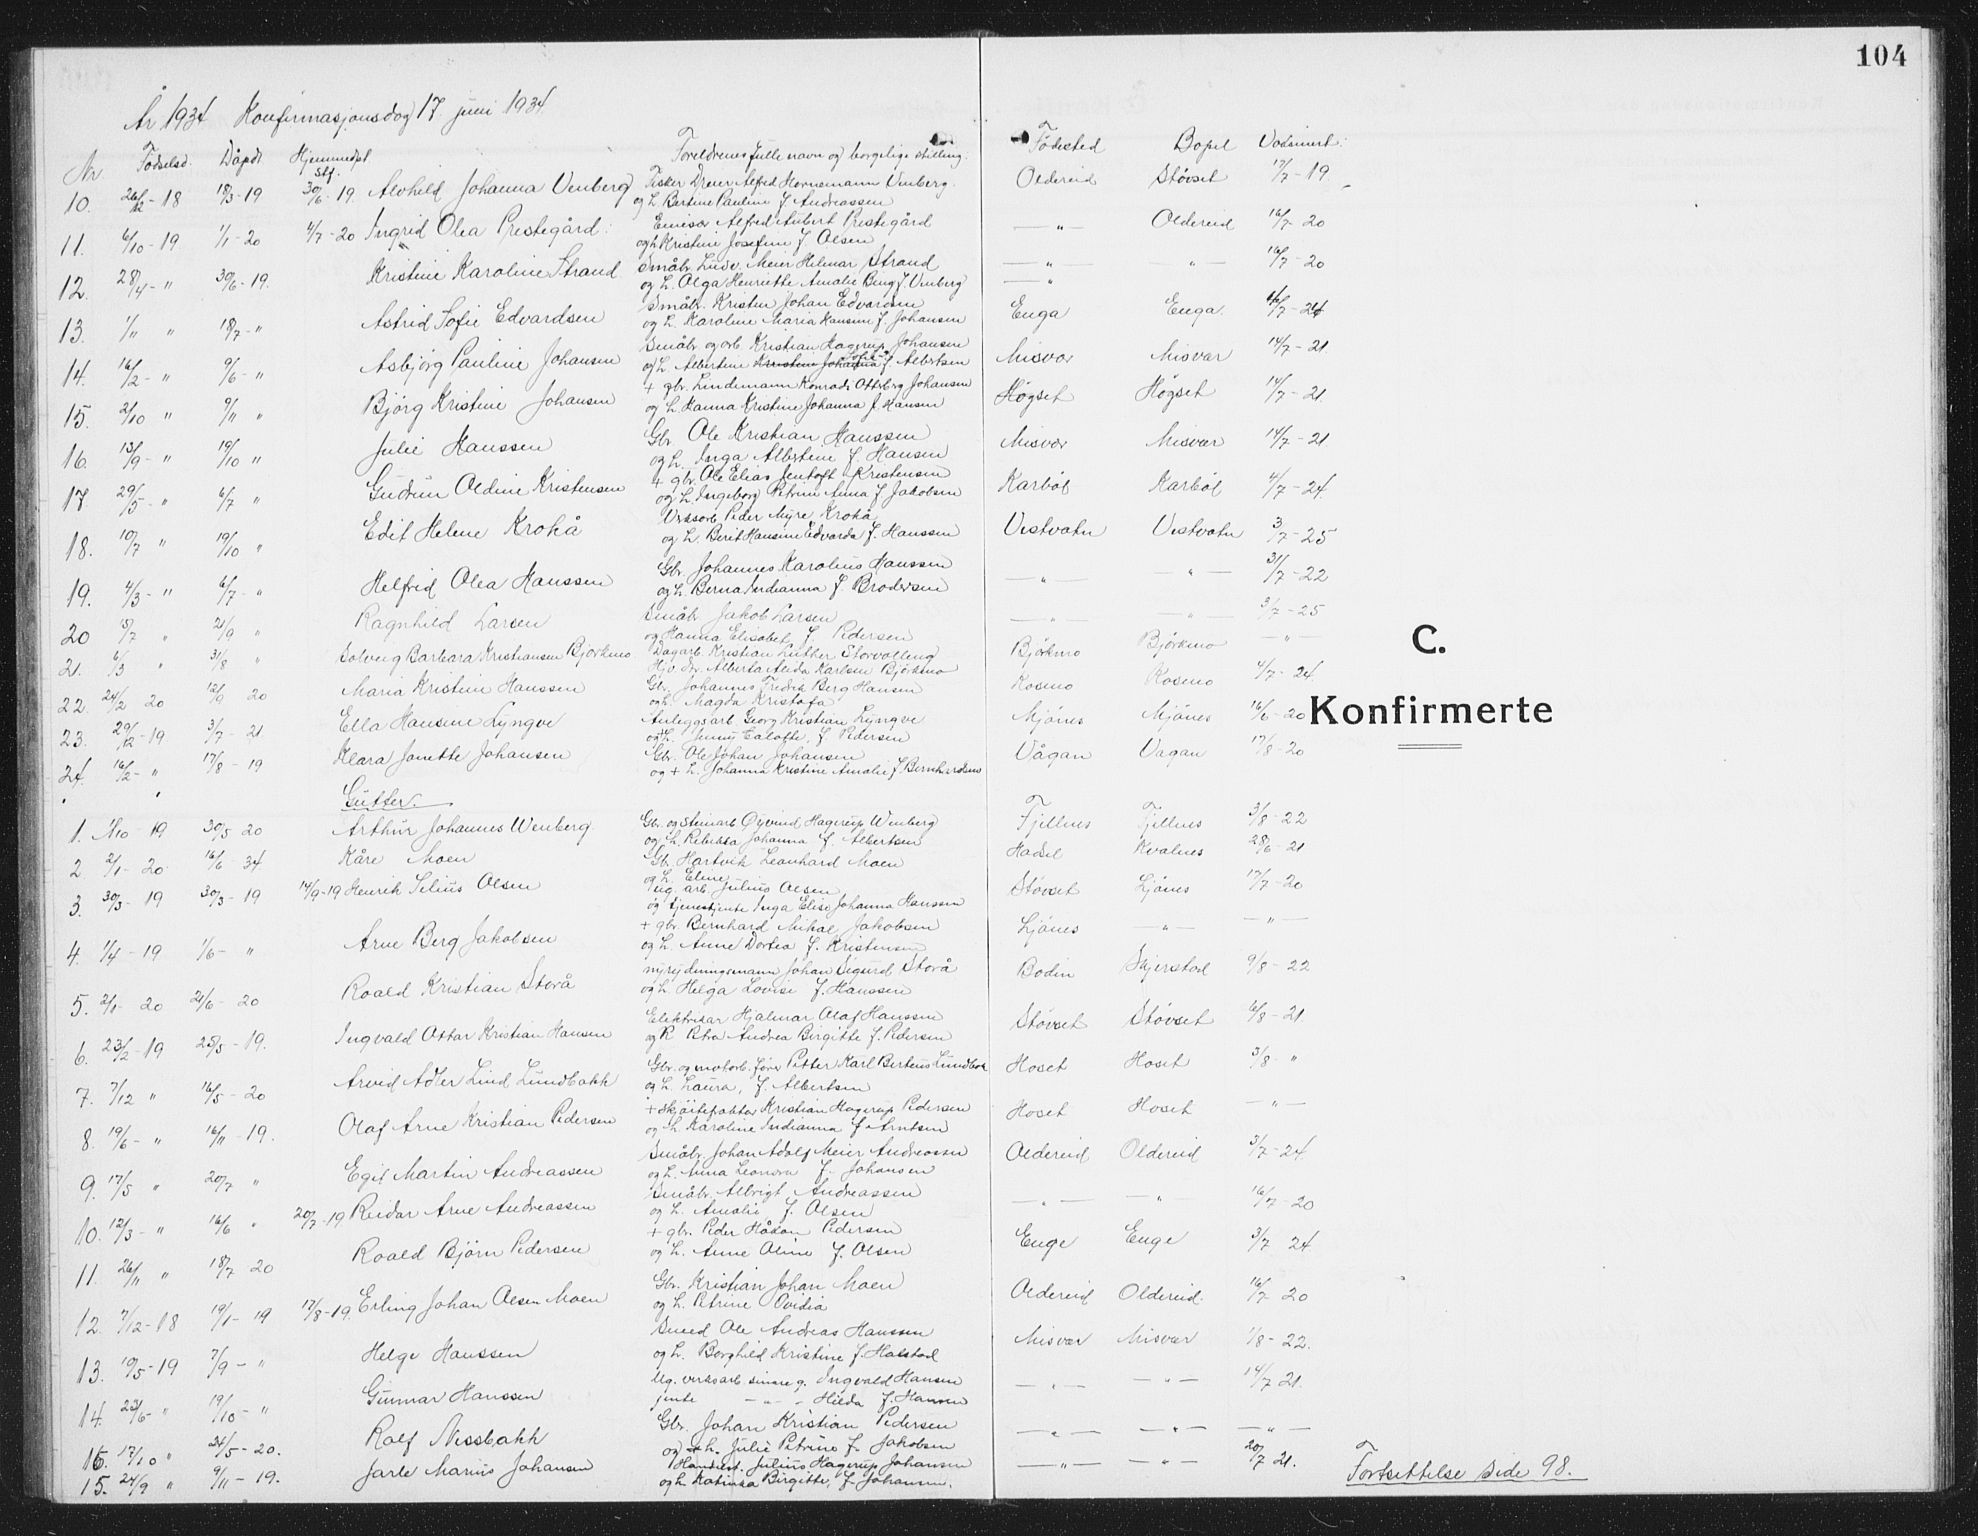 104
År 1934 Konfirmasjonsdag 17. juni 1934
Nr. Fødselsd. Dåpdt Hjemmedpt stf. Foreldrenes fulle navn og borgelige stilling. Fødested Bopel Vaksinert:
10. 26/12-18 18/3-19 30/6-19. Alvhild Johanna Venberg Fisker Dreier Alfred Hornemann Venberg. Oldereid Støvset 17/7-19
og h. Bertine Pauline f. Andreassen
11. 6/10-19 1/1-20 4/7-20 Ingrid Olea Prestegård: Emisær Alfred Aubert Prestegård —"— Oldereid 16/7-20
og h Kristine Josefine f. Olsen
12. 28/4-" 30/6-19. Kristine Karoline Strand Småbr. Ludv. Meier Helmar Strand —"— —"— 16/7-20
og h. Olga Henriette Amalie Berg f. Venberg —"
13. 1/11 " 18/7-" Astrid Sofie Edvardsen Småbr. Kristen Johan Edvardsen Enga Enga
og h. Karoline Maria Hansine f. Johansen
14. 16/2-" 9/6-" Asbjörg Pauline Johansen Småbr og arb Kristian Hagerup Johansen Misvær Misvær 14/7-21.
og h. Albertine Kristine Johanna f. Albertsen
15. 2/10 " 9/11 " Björg Kristine Johansen + gbr. Lindemann Konradi Ottsberg Johansen Högset Högset 14/7-21.
og h. Hanna Kristine Johanna f. Hansen
16. 13/9-" 19/10 " Julie Hanssen Gbr. Ole Kristian Hanssen Misvær Misvær 14/7-21
og h. Inga Albertine f. Hansen
17. 29/5-" 6/7 " Gudrun Oldine Kristensen + gbr. Ole Elias Jentoft Kristensen Karböl Karböl 4/7-24
og h. Ingeborg Petrine Anna f. Jakobsen
18. 10/7 " 19/10 " Edit Helene Krokå Veksarb Peder Myre Krokå Vestvatn Vestvatn 3/7-25
og h. Berit Hansine Edvarda f. Hanssen
19. 4/3-" 6/7-" Helfrid Olea Hanssen Gbr. Johannes Karolius Hanssen —"— —"— 31/7-22
og h. Berna Indianna f. Brodersen
20 15/7 " 21/9 " Ragnhild Larsen Småbr Jakob Larsen —"— —"— 3/7-25
og Hanna Elisabet f. Pedersen
21. 6/3 " 31/8 " Solveig Barbara Kristiansen Björkmo Dagarb. Kristian Luther Storvolleng Björkmo Björkmo —"—
Hjv. dr. Alberta Aleida Karlsen Björkmo
22. 24/2 20 12/9 20 Maria Kristine Hanssen Gbr. Johannes Fredrik Berg Hansen Kosmo Kosmo 4/7-24
og h. Magda Kristofa
23. 29/12-19 3/7-21 Ella Hansine Lyngve Anleggsarb. Georg Kristian Lyngve Mjönes Mjönes 16/6-20
og h. Jenny f. Pedersen
24. 16/2-" 17/8-19 Klara Janette Johansen Gbr. Ole Johan Johansen Vågan Vågan 17/8-20
og + h. Johanna Kristine Amalie f Bernhardsen
Gutter.
1. 1/10-19 30/5 20 Arthur Johannes Wenberg. Gbr. og steinarb Øyvind Hagerup Wenberg Fjellnes Fjellnes 3/8-22
og h. Rebekka Johanna f. Albertsen
2 2/1-20 16/6-34 Kåre Moen Gbr. Hartvik Leonhard Moen Hadsel Kvalnes 28/6-21
og h. Eline
3. 30/3-19 30/3-19 14/9-19 Henrik Selius Olsen ug. arb. Julius Olsen Støvset Ljönes 17/7-20
og tjenestjente Inga Elise Johanna Hanssen
4. 1/4-19 1/6-" Arne Berg Jakobsen + gbr. Bernhard Mikal Jakobsen Ljönes —"— —"—
og h. Anne Dortea f. Kristensen
5. 2/1-20 21/6-20 Roald Kristian Storå nyrydningsmann Johan Sigurd Storå Bodin Skjerstad 9/8-22
og h. Helga Lovise f. Hanssen
6. 23/2-19 25/5-19. Ingvald Ottar Kristian Hansen Elektriker Hjalmar Olaf Hanssen Støvset Støvset 6/8-21
og k Petra Andrea Birgitte f. Pedersen
7. 7/12 " 16/5-20 Arvid Adler Lind Lundbakk Gbr. og motorb. förer Petter Karl Berteus Lundbak Hoset Hoset 3/8-"
og h. Laura, f. Albertsen
8. 19/6-" 16/11-19. Olaf Arne Kristian Pedersen + Skjöitefabter Kristian Hagerup Pedersen Hoset Hoset —"—
og h. Karoline Indianna f. Arntsen
9. 17/5 " 20/7 " Egil Martin Andreassen Småbr. Johan Adolf Meier Andreassen Oldereid Oldereid 3/7-24
og h. Anna Leonora f. Johansen
10. 12/3-" 16/6 " 20/7-19 Reidar Arne Andreassen Småbr. Albrigt Andreassen —"— —"— 16/7-20
og h. Amalie f. Olsen
11. 26/11 " 18/7 20 Roald Björn Pedersen + gbr. Peder Håkon Pedersen Enge Enge 3/7 24
og h. Anne Oline f. Olsen
12. 7/12-18 19/1-19 17/8-19. Erling Johan Olsen Moen Gbr. Kristian Johan Moen Oldereid Oldereid. 16/7 20
og h. Petrine Ovidia
13. 10/5-19 7/9-" Helge Hanssen Smed Ole Andreas Hanssen Misvær Misvær 1/8-22.
og h. Borghild Kristine f. Halstad
14. 23/6-" 19/10-" Gunnar Hanssen Ug. verksarb Ingvald Hansen —"— —"— 14/7 21.
jente —"— Hilda f. Hansen
16. 17/10 " 24/5-20. Rolf Nessbakk Gbr. Johan Kristian Pedersen —"— —"— —"—
og + h. Julie Petrine f. Jakobsen
15. 24/9 " 9/11-19. Jarle Marius Johansen Handest. Julius Hagerup Johansen —"— —"— 20/7 21.
og h. Katinka Birgitte, f. Johansen.
C.
Konfirmerte
Fortsettelse side 98.